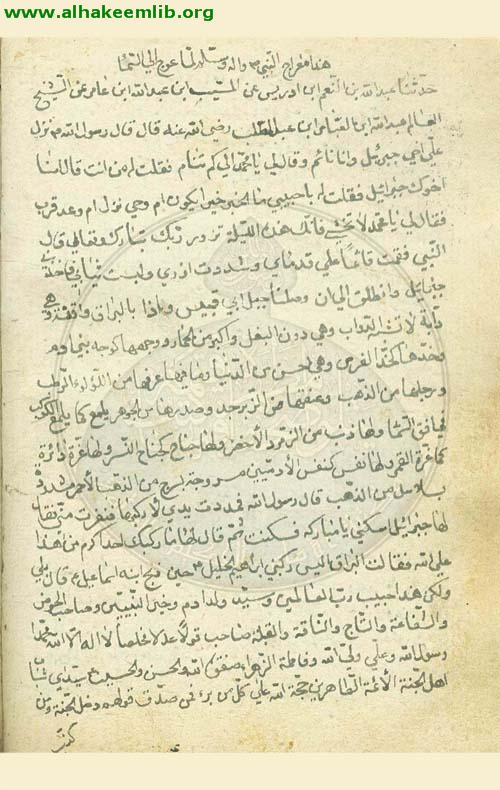 www.alhakeemlib.org
هذا معراج النبي ص واله وسلم لما عرج الى السما
حدثنا عبد الله بن المنعم ابن ادريس عن المسيب ابن عبد الله ابن عامر عن الشيخ
العالم عبد الله ابن العباس ابن عبد المطلب رضي الله عنه قال قال رسول الله ص نزل
علي اخي جبرئيل وانا نائم وقال لي يا محمد الى كم تنام فقلت له من انت قال انا
اخوك جبرائيل فقلت له يا حبيبي ما الخبر خير ايكون ام وحي نزل ام وعد قرب
فقال لي يا محمد لا تخشى فانك هذه الليلة تزور ربك تبارك وتعالى قال
النبي فقمت قائما على قدماي وشددت ازري ولبست ثيابي
جبرئيل وانطلق الى ان وصلنا جبل ابي قبيس واذا بالبراق واقفة وهي
دابة لا تشبه الدواب وهي دون البغل واكبر من الحمار ووجهها كوجه بني ادم
وخدها كخد الفرس وهي احسن من الدنيا وما فيها عرفها من اللؤلؤ الرطب
ورجلها من الذهب وعنقها من الزبرجد وصدرها من الجوهر يلمع كما يلمع الكوكب
في افق السما ولها ذنب من الزمرد الاخضر ولها جناح كجناح النسر ولها غرة دائرة
كما غرة القمر ولها نفس كنفس الادميين مسروجة بسرج من الذهب الاحمر
بسلاسل من الذهب قال رسول الله فمددت يدي لاركبها فنفرت مني فقال
لها جبرائيل اسكني يا مباركه فسكنت ثم قال لها ما ركبك احد اكرم من هذا
على الله فقالت البراق اليس ركبني ابراهيم الخليل ع حين ذبح ابنه اسماعيل ع قال بلى
ولكن هذا حبيب رب العالمين وسيد ولد ادم وخير النبيين وصاحب الحوض
والشفاعة والتاج والناقة والقبلة صاحب قولا عدلا مخلصا لا اله الا الله محمدا
رسول الله وعلي ولي الله وفاطمة الزهراء صفوة الله والحسن والحسين ع سيدي شباب
اهل الجنة الائمة الطاهرين حجة الله على كل من برء فمن صدق قولهم دخل الجنة ومن
كذب